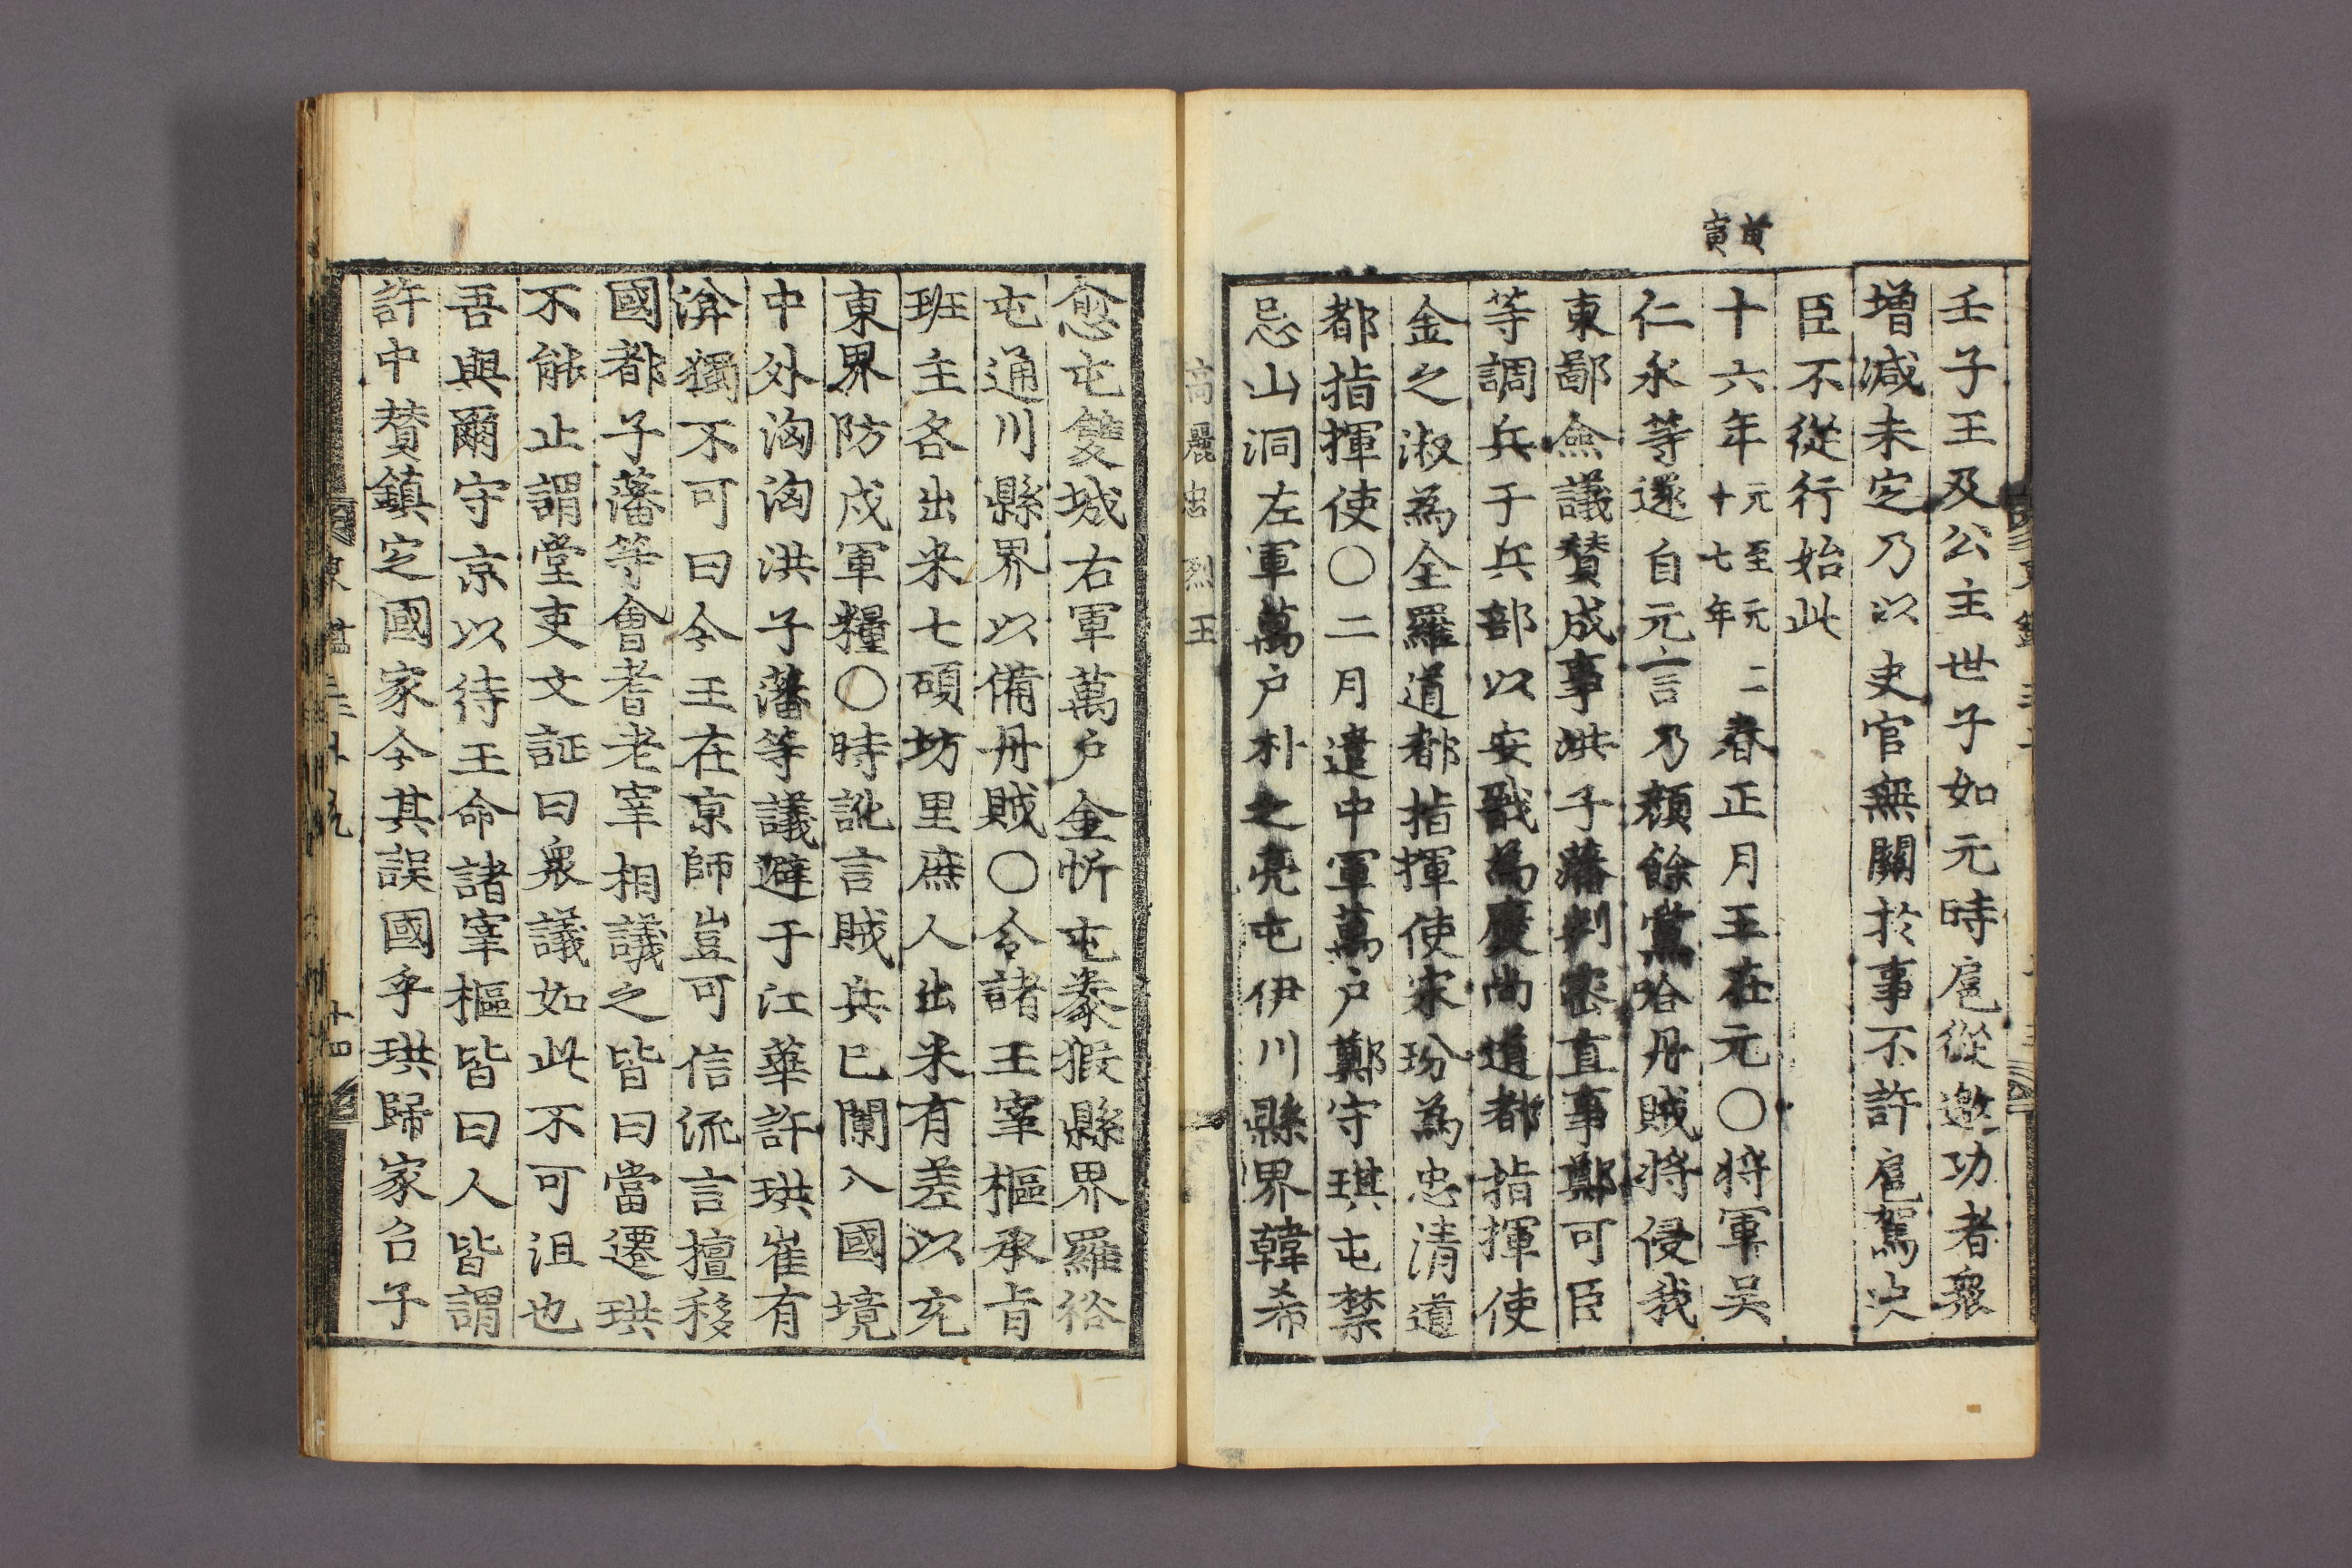 壬子王及公主世子如元時扈從邀功者衆
增減未定乃以吏官無關於事不許扈駕史
臣不從行始此
庚寅
十六年元至元二十七年春正月王在元〇將軍吳
仁永等還自元言乃顔餘黨哈丹賊將侵我
東鄙僉議贊成事洪子藩判密直事鄭可臣
等調兵于兵部以安戩爲慶尚道都指揮使
金之淑爲全羅道都指揮使宋玢爲忠清道
都指揮使〇二月遣中軍萬戶鄭守琪屯禁
忌山洞左軍萬戶朴之亮屯伊川縣界韓希
高麗忠烈王
愈屯雙城右軍萬戶金忻屯豢猳縣界羅裕
屯通川縣界以備丹賊〇令諸王宰樞承旨
班主各出米七碩坊里庶人出米有差以充
東界防戍軍糧〇時訛言賊兵已闌入國境
中外洶洶洪子藩等議避于江華許珙崔有
渰獨不可曰今王在京師豈可信流言擅移
國都子藩等會耆老宰相議之皆曰當遷珙
不能止謂堂吏文証曰衆議如此不可沮也
吾與爾守京以待王命諸宰樞皆曰人皆謂
許中贊鎮定國家今其誤國乎珙歸家召子